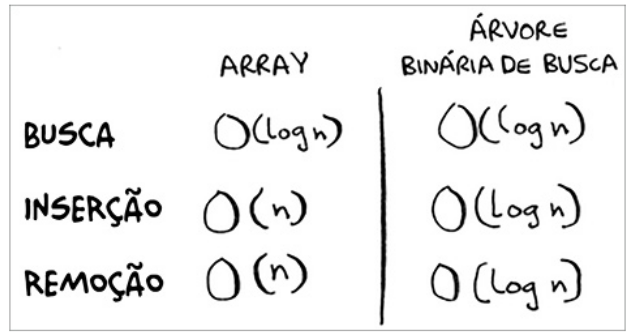 ARRAY ÁRVORE BINÁRIA DE BUSCA
BUSCA O(log n) O(log n)
INSERÇÃO O(n) O(log n)
REMOÇÃO O(n) O(log n)